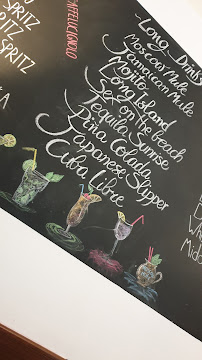 SPRITZ
SPRITZ
CAFFELUCIGNOLO
Long Drinks
Moscow Mule
Jamaican Mule
Mojito
Long Island
Sex on the beach
Tequila Sunrise
Piña Colada
Japanese Slipper
Cuba Libre